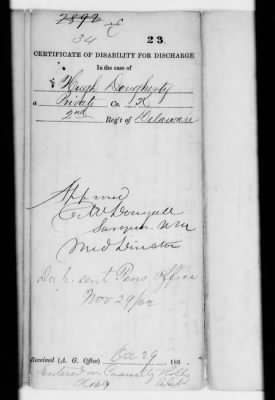 2892 C
34 23
CERTIFICATE OF DISABILITY FOR DISCHARGE
In the case of
Hugh Dougherty
a Private Co. K
2nd Reg't of Delaware
Approved
C. McDougall
Surgeon USA
Med Director
Dup. sent Pens. Office
Nov 29/62
Received (A. G. Office) Oct 29 186
Entered on Casualty Rolls